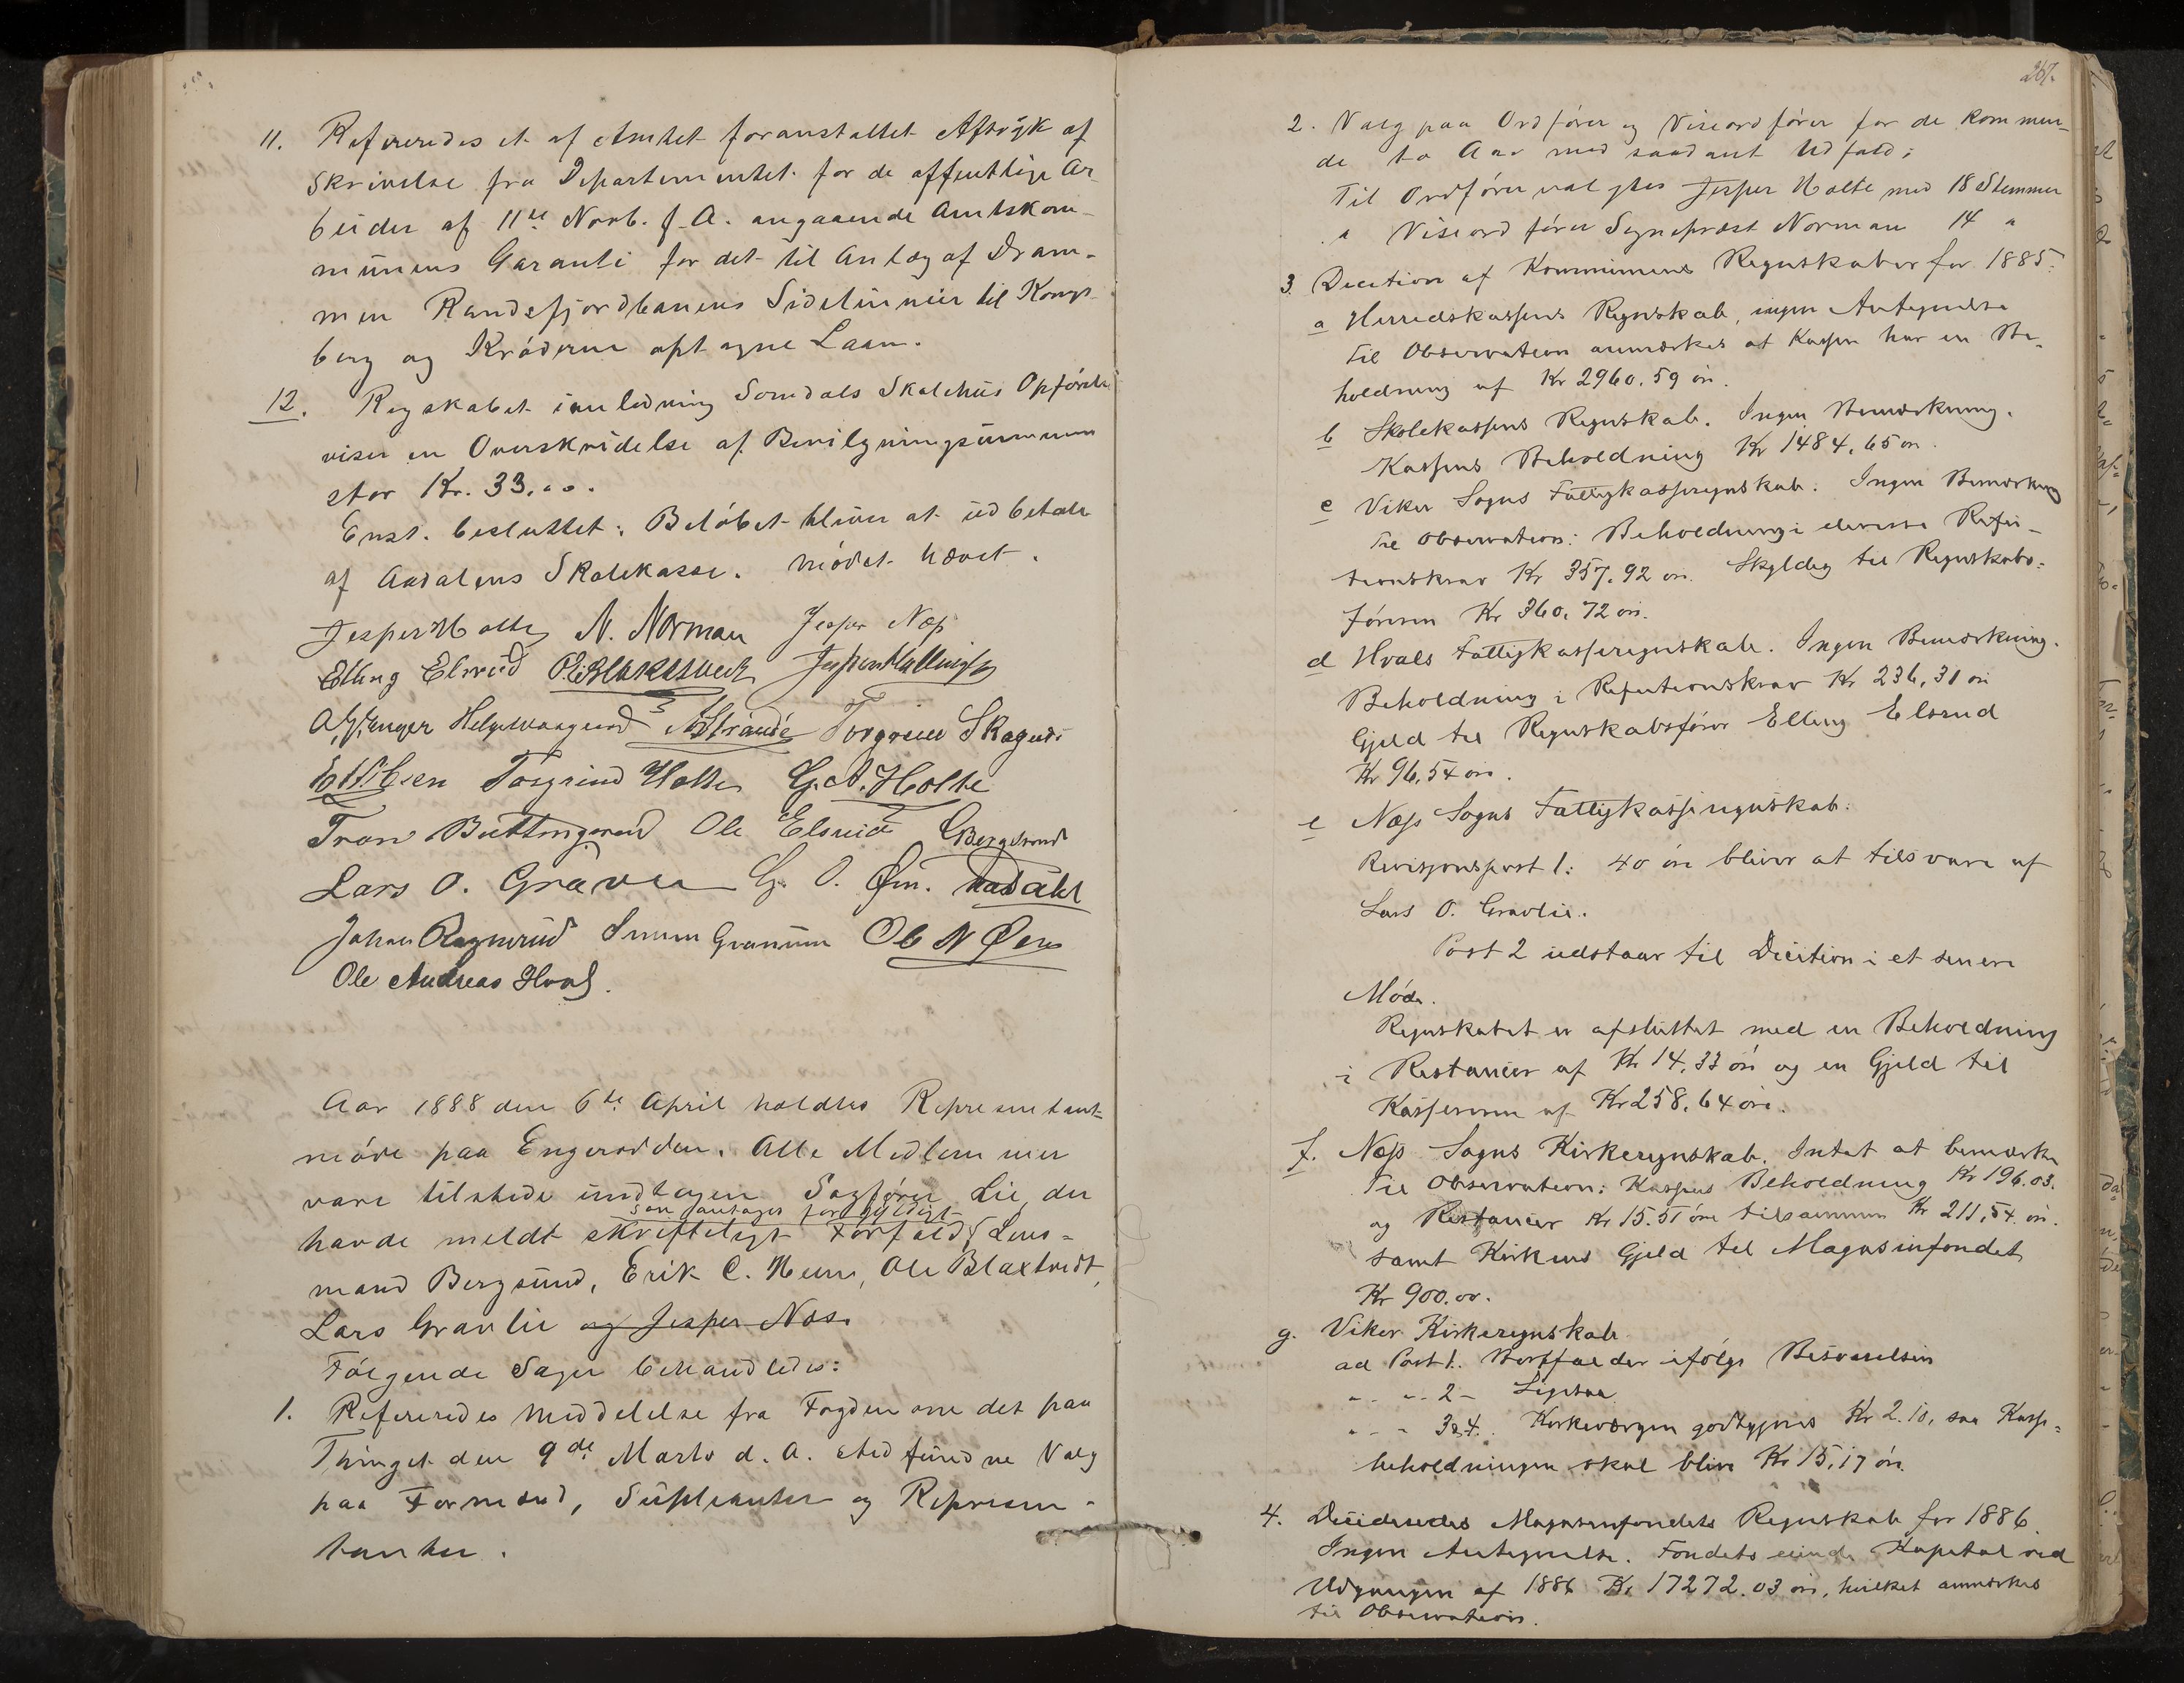 11. Refereredes et af Amtet foranstaltet Aftryk af
Skrivelse fra Departementet for de offentlige Ar-
beider af 11te Novb. f. A. angaaende Amtskom-
munens Garanti for det til Anlæg af Dram-
men Randsfjordbanens Sidelinnier til Kongs-
berg og Krøderen optagne Laan.
12. Regskabet i anledning Somdals Skolehus Opførelse
viser en Overskridelse af Bevilgningssummen
stor Kr. 33,00.
Enst. besluttet: Beløbet bliver at udbetale
af Aadalens Skolekasse. Mødet hævet.
Jesper Holte N. Norman Jesper Næs
Elling Elsrud
Torgrim Skagnæs
Torgrim Holte G. A. Holte
Tron Buttingsrud Ole Elsrud Bergsund
Lars O. Gravli G. O. Øen.
Johan Ragnrud Granum Ole N Øen
Ole Andreas Hval.
Aar 1888 den 6te April holdtes Representant-
møde paa Engerodden. Alle Medlemmer
vare tilstede undtagen Sagfører Lie, der
som antages for gyldigt
havde meldt skrifteligt Forfald, Lens-
mand Bergsund, Erik C. Heen, Ole Blaxtvedt,
Lars Gravlie og Jesper Næs.
Følgende Sager behandledes:
1. Refereredes Meddelelse fra Fogden om det paa
Thinget den 9de Marts d. A. stedfundne Valg
paa Formænd, Supleanter og Represen-
tanter.
267.
2. Valg paa Ordfører og Viseordfører for de kommen-
de to Aar med saadant Udfald:
Til Ordfører valgtes Jesper Holte med 18 Stemmer
" Viseordfører Sogneprest Norman 14 "
3. Decition af Kommunens Regnskaber for 1885:
a Herredskassens Regnskab, ingen Antegnelse
Til Observation anmærkes at Kassen har en Be-
holdning af Kr 2960.59 øre.
b Skolekassens Regnskab. Ingen Bemærkning.
Kassens Beholdning Kr 1484,65 øre.
c Viker Sogns Fattigkasseregnskab. Ingen Bemærkning
Til Observation: Beholdning i diverse Refu-
tionskrav Kr 357.92 øre. Skyldig til Regnskabs-
føreren Kr 360.72 øre.
d Hvals Fattigkasseregnskab. Ingen Bemærkning.
Beholdning i Refutionskrav Kr 236,31 øre
Gjeld til Regnskabsfører Elling Elsrud
Kr 96,54 øre.
e Næs Sogns Fattigkasseregnskab:
Revisjonspost 1: 40 øre bliver at tilsvare af
Lars O. Gravlie.
Post 2 udstaar til Decition i et senere
Møde.
Regnskabet er afsluttet med en Beholdning
i Restancer af Kr 14,33 øre og en Gjeld til
Kassereren af Kr 258,64 øre.
f. Næs Sogns Kirkeregnskab. Intet at bemærke
Til Observation: Kassens Beholdning Kr 196.03.
og Restancer Kr 15.51 øre tilsammen Kr 211,54 øre.
samt Kirkens Gjeld til Magasinfondet
Kr 900.00.
g. Viker Kirkeregnskab.
ad Post 1. Bortfalder ifølge Besvarelsen
" " 2 - Ligesaa
" " 3 & 4. Kirkeværgen godtgjøres Kr 2.10, saa Kasse-
beholdningen skal blive Kr 15,17 øre.
4. Decideredes Magasinfondets Regnskab for 1886.
Ingen Antegnelse. Fondets eiende Kapital ved
Udgangen af 1886 Kr 17272.03 øre, hvilket anmærkes
til Observation.